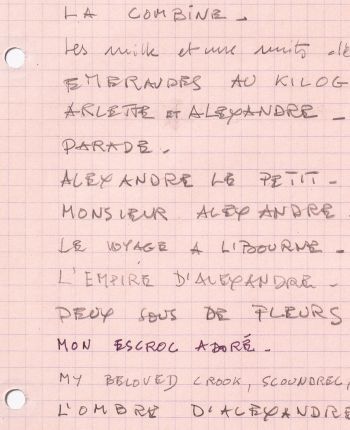 LA COMBINE -
Les mille et une nuits d'é
EMERAUDES AU KILOG
ARLETTE ET ALEXANDRE -
PARADE -
ALEXANDRE LE PETIT -
MONSIEUR ALEXANDRE
LE VOYAGE A LIBOURNE -
L'EMPIRE D'ALEXANDRE -
DEUX SOUS DE FLEURS
MON ESCROC ADORÉ -
MY BELOVED CROOK, SCOUNDREL,
L'OMBRE D'ALEXANDRE